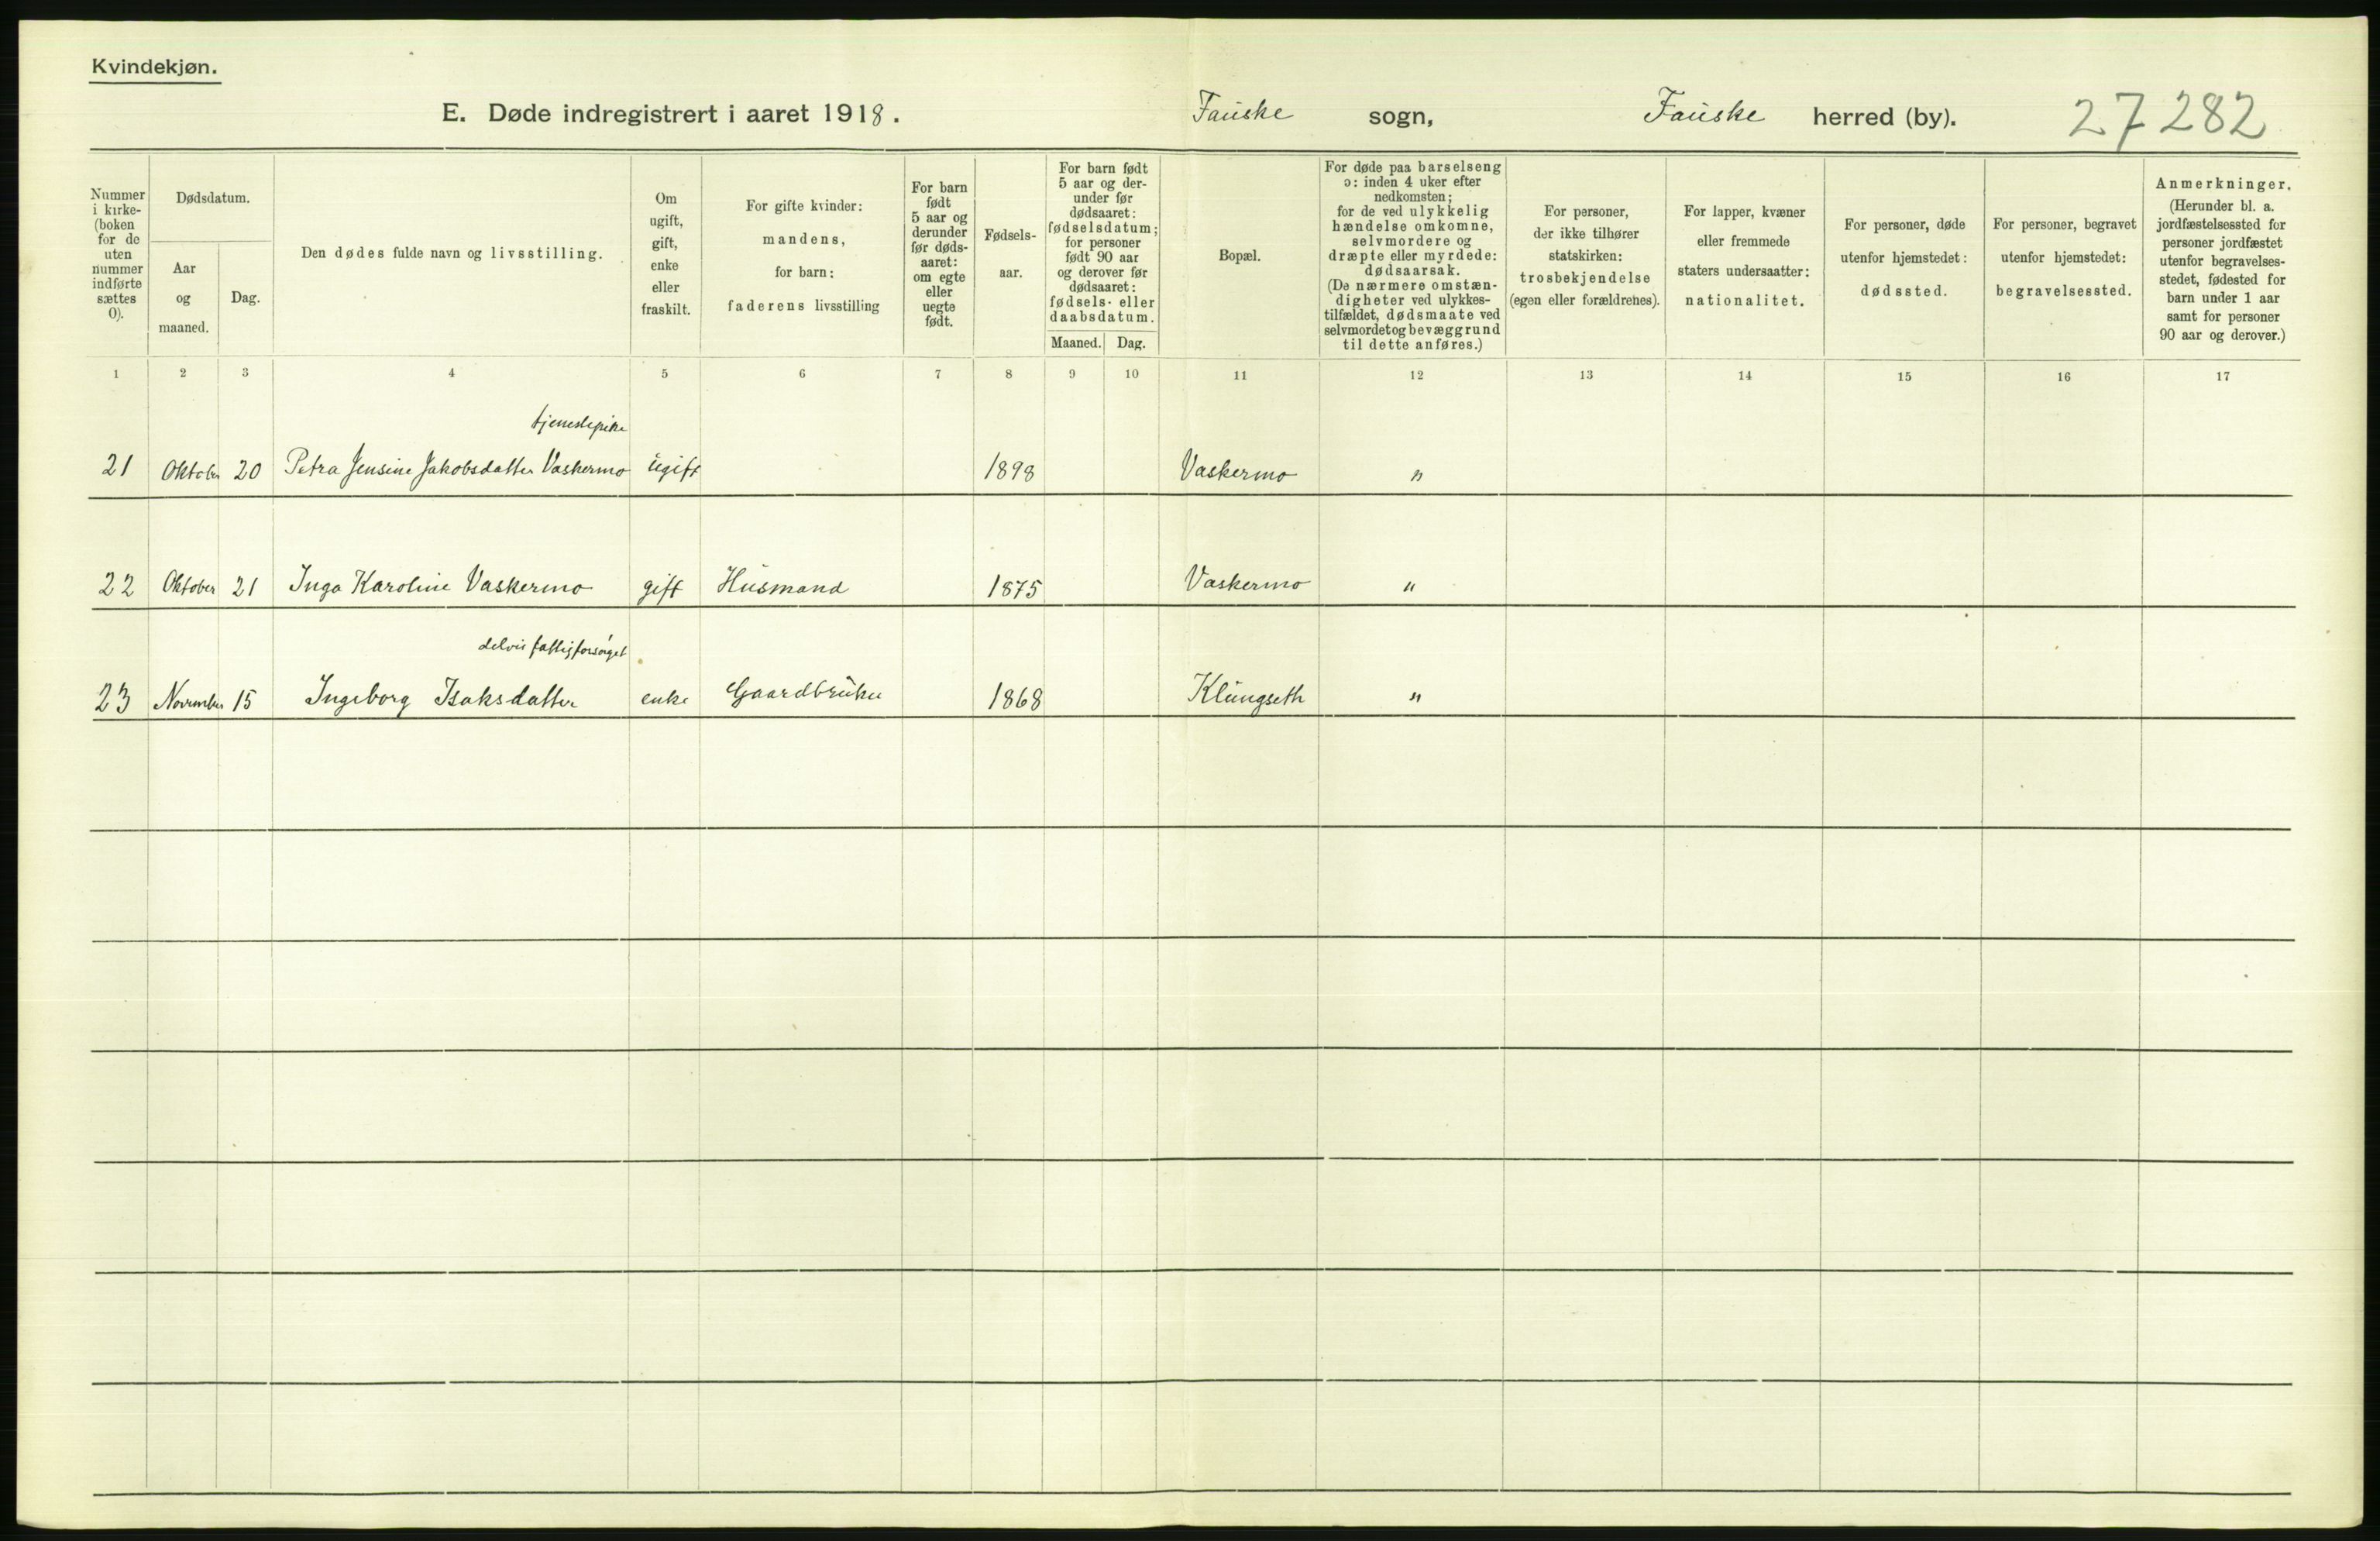 Kvindekjøn.
E. Døde indregistrert i aaret 1918. Fauske sogn, Fauske herred (by). 27282
Nummer i kirke- (boken for de uten nummer indførte sættes 0).
Dødsdatum.
Aar og maaned.
Dag.
Den dødes fulde navn og livsstilling.
Om ugift, gift, enke eller fraskilt.
For gifte kvinder: mandens, for barn: faderens livsstilling
For barn født 5 aar og derunder før døds- aaret: om egte eller uegte født.
Fødsels- aar.
For barn født 5 aar og der- under før dødsaaret: fødselsdatum; for personer født 90 aar og derover før dødsaaret: fødsels- eller daabsdatum.
Maaned. Dag.
Bopæl.
For døde paa barselseng ɔ: inden 4 uker efter nedkomsten; for de ved ulykkelig hændelse omkomne, selvmordere og dræpte eller myrdede: dødsaarsak. (De nærmere omstæn- digheter ved ulykkes- tilfældet, dødsmaate ved selvmordet og bevæggrund til dette anføres.)
For personer, der ikke tilhører statskirken: trosbekjendelse (egen eller forældrenes).
For lapper, kvæner eller fremmede staters undersaatter: nationalitet.
For personer, døde utenfor hjemstedet: dødssted.
For personer, begravet utenfor hjemstedet: begravelsessted.
Anmerkninger. (Herunder bl. a. jordfæstelsessted for personer jordfæstet utenfor begravelses- stedet, fødested for barn under 1 aar samt for personer 90 aar og derover.)
1 2 3 4 5 6 7 8 9 10 11 12 13 14 15 16 17
tjenestepike
21 Oktober 20 Petra Jensine Jakobsdatter Vaskermo ugift 1898 Vaskermo "
22 Oktober 21 Inga Karoline Vaskermo gift Husmand 1875 Vaskermo "
delvis fattigforsørget
23 November 15 Ingeborg Isaksdatter enke Gaardbruker 1868 Klungseth "